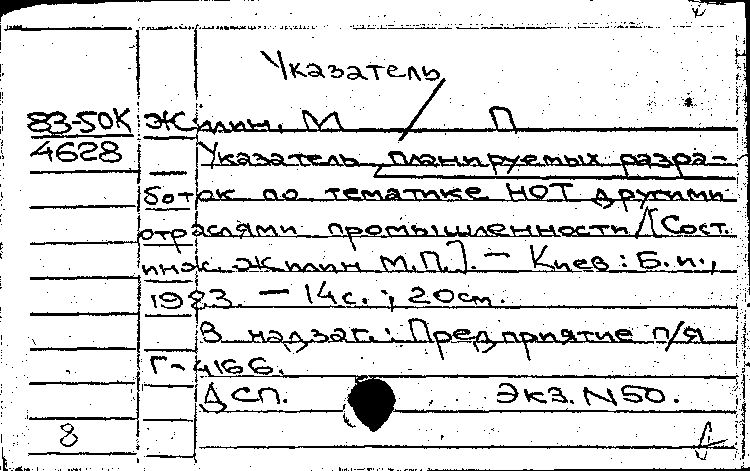 Указатель
83-50К Жилин, М П
4628 Указатель планируемых разра-
боток по тематике НОТ другими
отраслями промышленности/[Сост.
инж. Жилин М.П.]. — Киев: Б.и.,
1983. — 14с.; 20см.
В надзаг.: Предприятие п/я
Г-4166.
ДСП. Экз. N50.
8